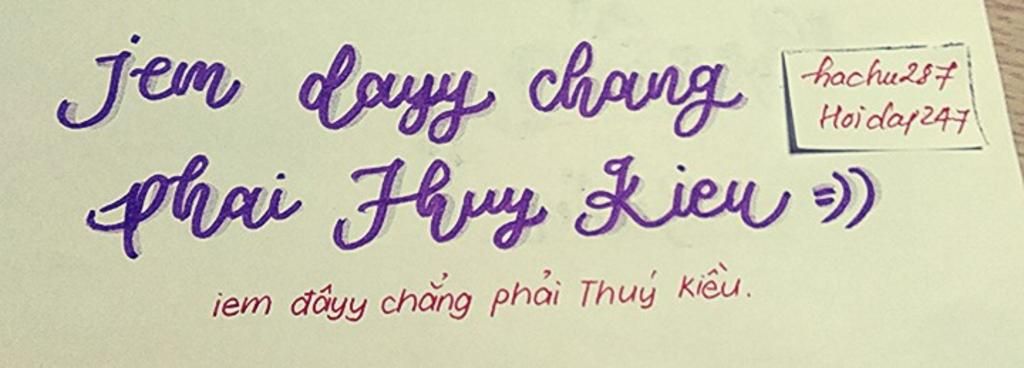 iem dayy chang
phai Thuy Kieu =))
hachu287
Hoidap247
iem đâyy chẳng phải Thuý Kiều.